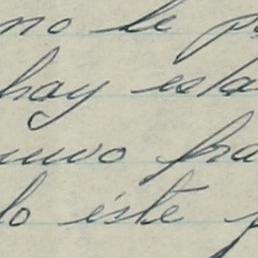 no le p
hay esta
uuvo fra
lo éste f